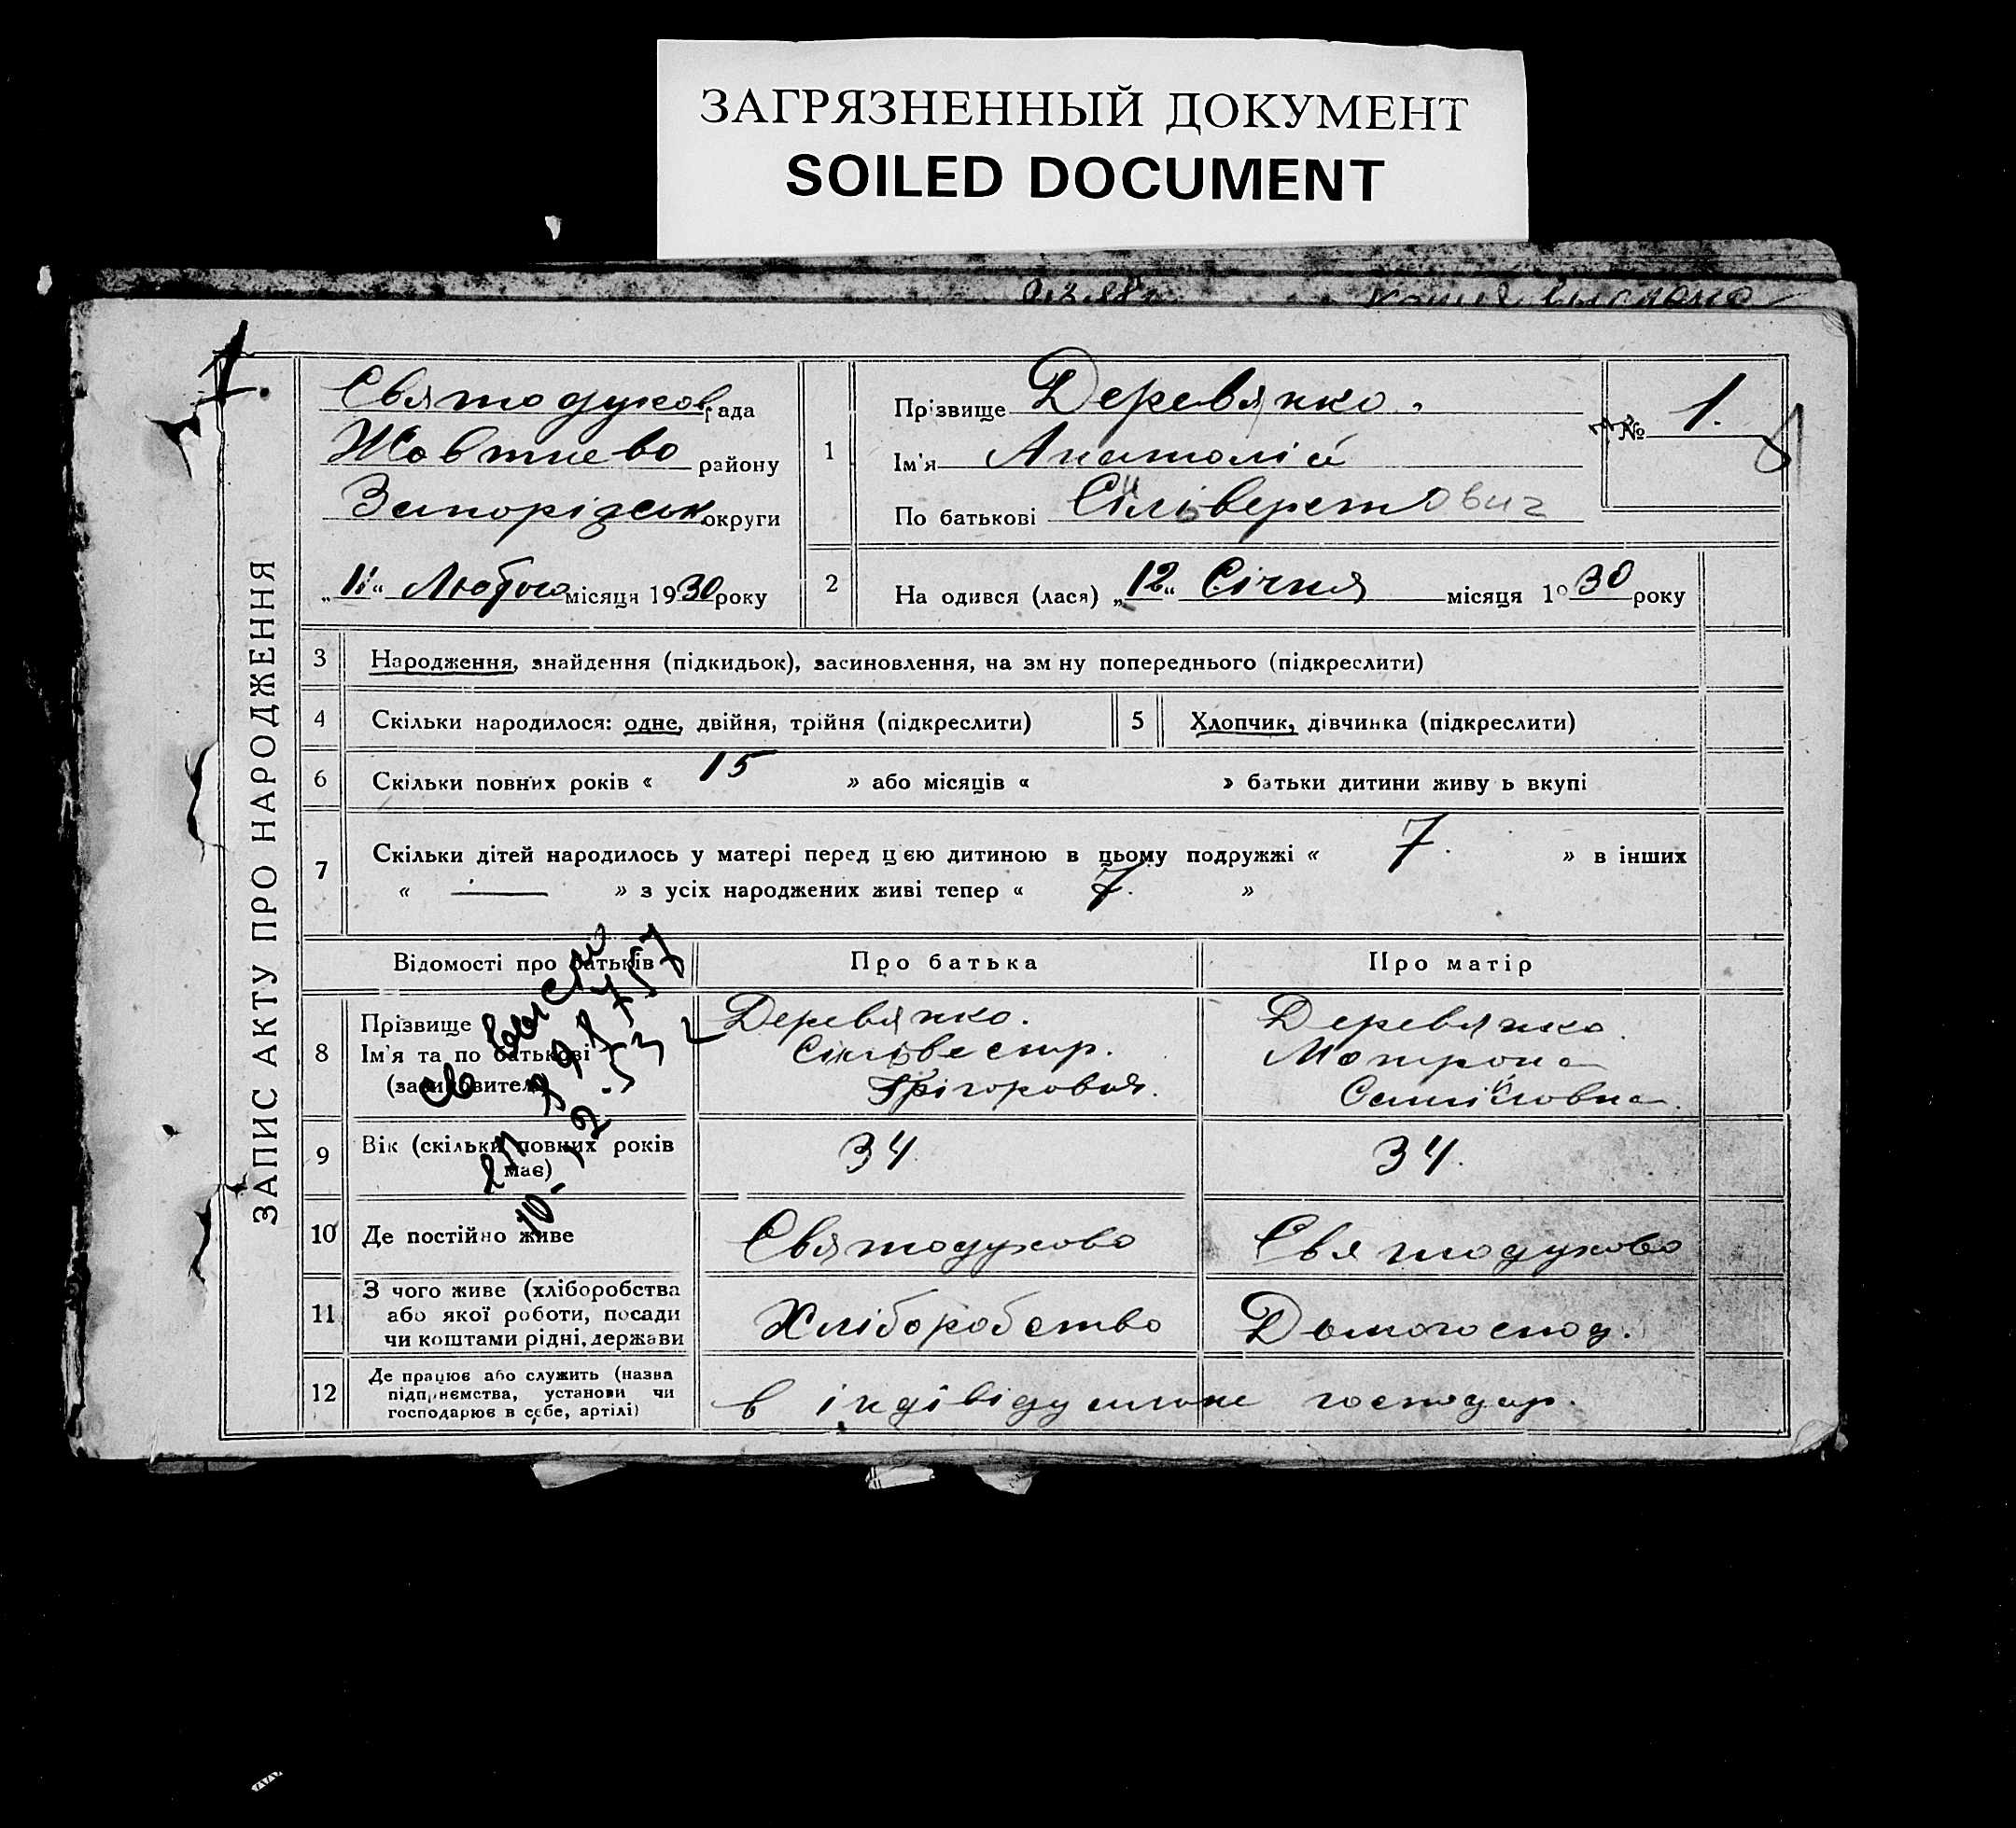 ЗАГРЯЗНЕННЫЙ ДОКУМЕНТ
SOILED DOCUMENT
1.
ЗАПИС АКТУ ПРО НАРОДЖЕННЯ
Святодухов рада
Жовтнево району
Запорідськ округи
„11“ Лютого місяця 1930 року
1
Прізвище Деревянко.
Ім'я Анатолій
По батькові Сіліверстович
№ 1.
2
На одився (лася) „12“ Січня місяця 1930 року
3 Народження, знайдення (підкидьок), засиновлення, на зм ну попереднього (підкреслити)
4 Скільки народилося: одне, двійня, трійня (підкреслити)
5 Хлопчик, дівчинка (підкреслити)
6 Скільки повних років « 15 » або місяців « » батьки дитини живу ь вкупі
7 Скільки дітей народилось у матері перед цією дитиною в цьому подружжі « 7. » в інших
« — » з усіх народжених живі тепер « 7. »
Відомості про батьків Про батька Про матір
8 Прізвище Деревянко. Деревянко.
Ім'я та по батькові Сілівестр. Мотрона
(засиновителів) Грігоровия. Самійловна.
9 Вік (скільки повних років 34. 34.
має)
10 Де постійно живе Святодухово Святодухово
11 З чого живе (хліборобства
або якої роботи, посади Хліборобство Домогоспод.
чи коштами рідні, держави
12 Де працює або служить (назва
підприємства, установи чи в індівідуальне господар.
господарює в себе, артілі)